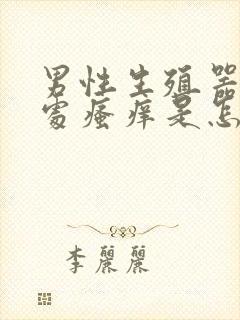 男性生殖器
處瘙痒是怎
李麗麗